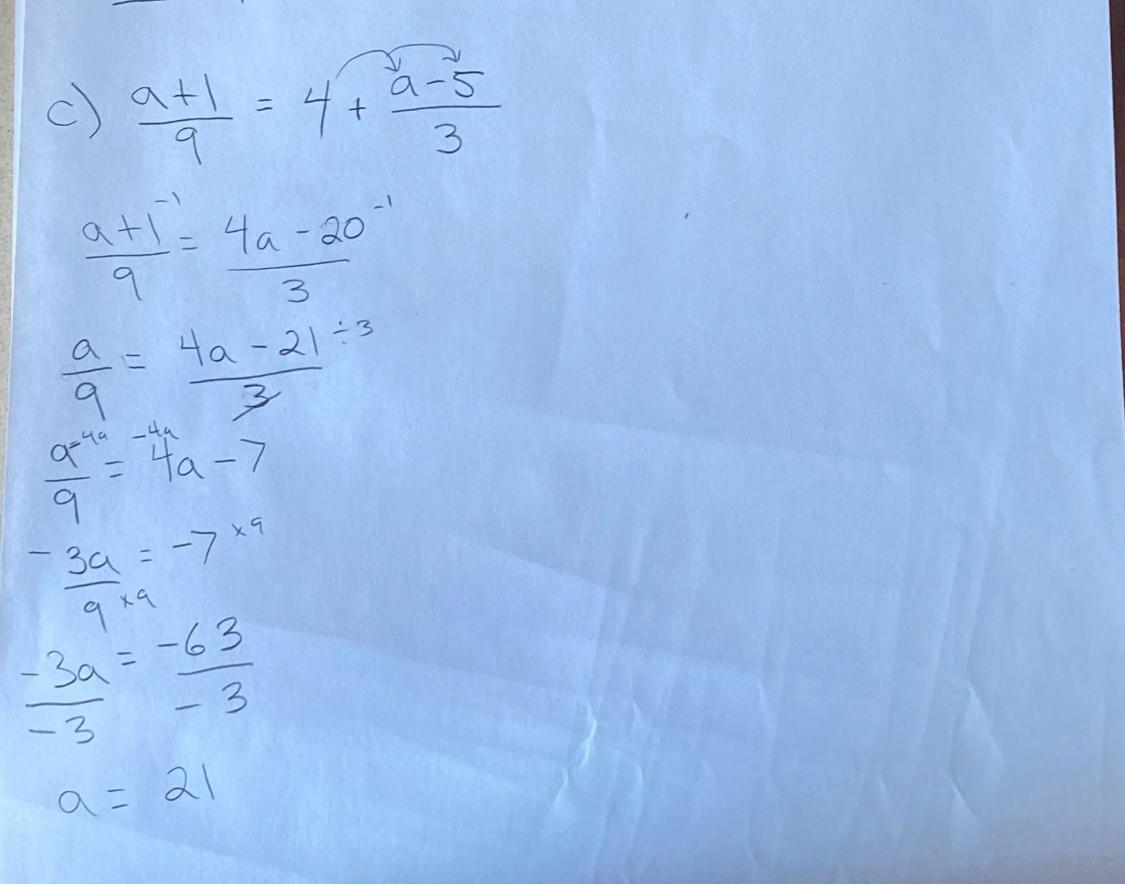 c) (a+1)/9 = 4 + (a-5)/3
(a+1^-1)/9 = (4a-20^-1)/3
a/9 = (4a-21 ÷3)/3
(a-4a)/9 = -4a 4a-7
-3a/9 ×9 = -7 ×9
-3a/-3 = -63/-3
a = 21